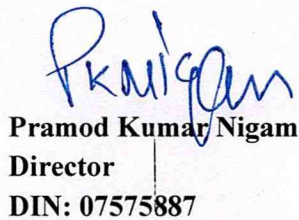 PKNigam
Pramod Kumar Nigam
Director
DIN: 07575887